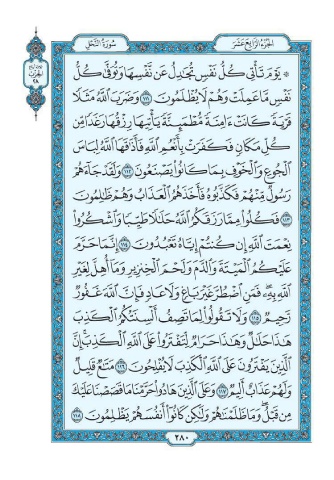 سُورَةُ النَّحْلِ
الجُزْءُ الرَّابِعَ عَشَرَ
۞ يَوْمَ تَأْتِي كُلُّ نَفْسٍ تُجَٰدِلُ عَن نَّفْسِهَا وَتُوَفَّىٰ كُلُّ
نَفْسٍ مَّا عَمِلَتْ وَهُمْ لَا يُظْلَمُونَ ١١١ وَضَرَبَ ٱللَّهُ مَثَلًا
قَرْيَةً كَانَتْ ءَامِنَةً مُّطْمَئِنَّةً يَأْتِيهَا رِزْقُهَا رَغَدًا مِّن
كُلِّ مَكَانٍ فَكَفَرَتْ بِأَنْعُمِ ٱللَّهِ فَأَذَٰقَهَا ٱللَّهُ لِبَاسَ
ٱلْجُوعِ وَٱلْخَوْفِ بِمَا كَانُوا۟ يَصْنَعُونَ ١١٢ وَلَقَدْ جَآءَهُمْ
رَسُولٌ مِّنْهُمْ فَكَذَّبُوهُ فَأَخَذَهُمُ ٱلْعَذَابُ وَهُمْ ظَٰلِمُونَ
١١٣ فَكُلُوا۟ مِمَّا رَزَقَكُمُ ٱللَّهُ حَلَٰلًا طَيِّبًا وَٱشْكُرُوا۟
نِعْمَتَ ٱللَّهِ إِن كُنتُمْ إِيَّاهُ تَعْبُدُونَ ١١٤ إِنَّمَا حَرَّمَ
عَلَيْكُمُ ٱلْمَيْتَةَ وَٱلدَّمَ وَلَحْمَ ٱلْخِنزِيرِ وَمَآ أُهِلَّ لِغَيْرِ
ٱللَّهِ بِهِۦ فَمَنِ ٱضْطُرَّ غَيْرَ بَاغٍ وَلَا عَادٍ فَإِنَّ ٱللَّهَ غَفُورٌ
رَّحِيمٌ ١١٥ وَلَا تَقُولُوا۟ لِمَا تَصِفُ أَلْسِنَتُكُمُ ٱلْكَذِبَ
هَٰذَا حَلَٰلٌ وَهَٰذَا حَرَامٌ لِّتَفْتَرُوا۟ عَلَى ٱللَّهِ ٱلْكَذِبَ إِنَّ
ٱلَّذِينَ يَفْتَرُونَ عَلَى ٱللَّهِ ٱلْكَذِبَ لَا يُفْلِحُونَ ١١٦ مَتَٰعٌ قَلِيلٌ
وَلَهُمْ عَذَابٌ أَلِيمٌ ١١٧ وَعَلَى ٱلَّذِينَ هَادُوا۟ حَرَّمْنَا مَا قَصَصْنَا عَلَيْكَ
مِن قَبْلُ وَمَا ظَلَمْنَٰهُمْ وَلَٰكِن كَانُوٓا۟ أَنفُسَهُمْ يَظْلِمُونَ ١١٨
٢٨٠